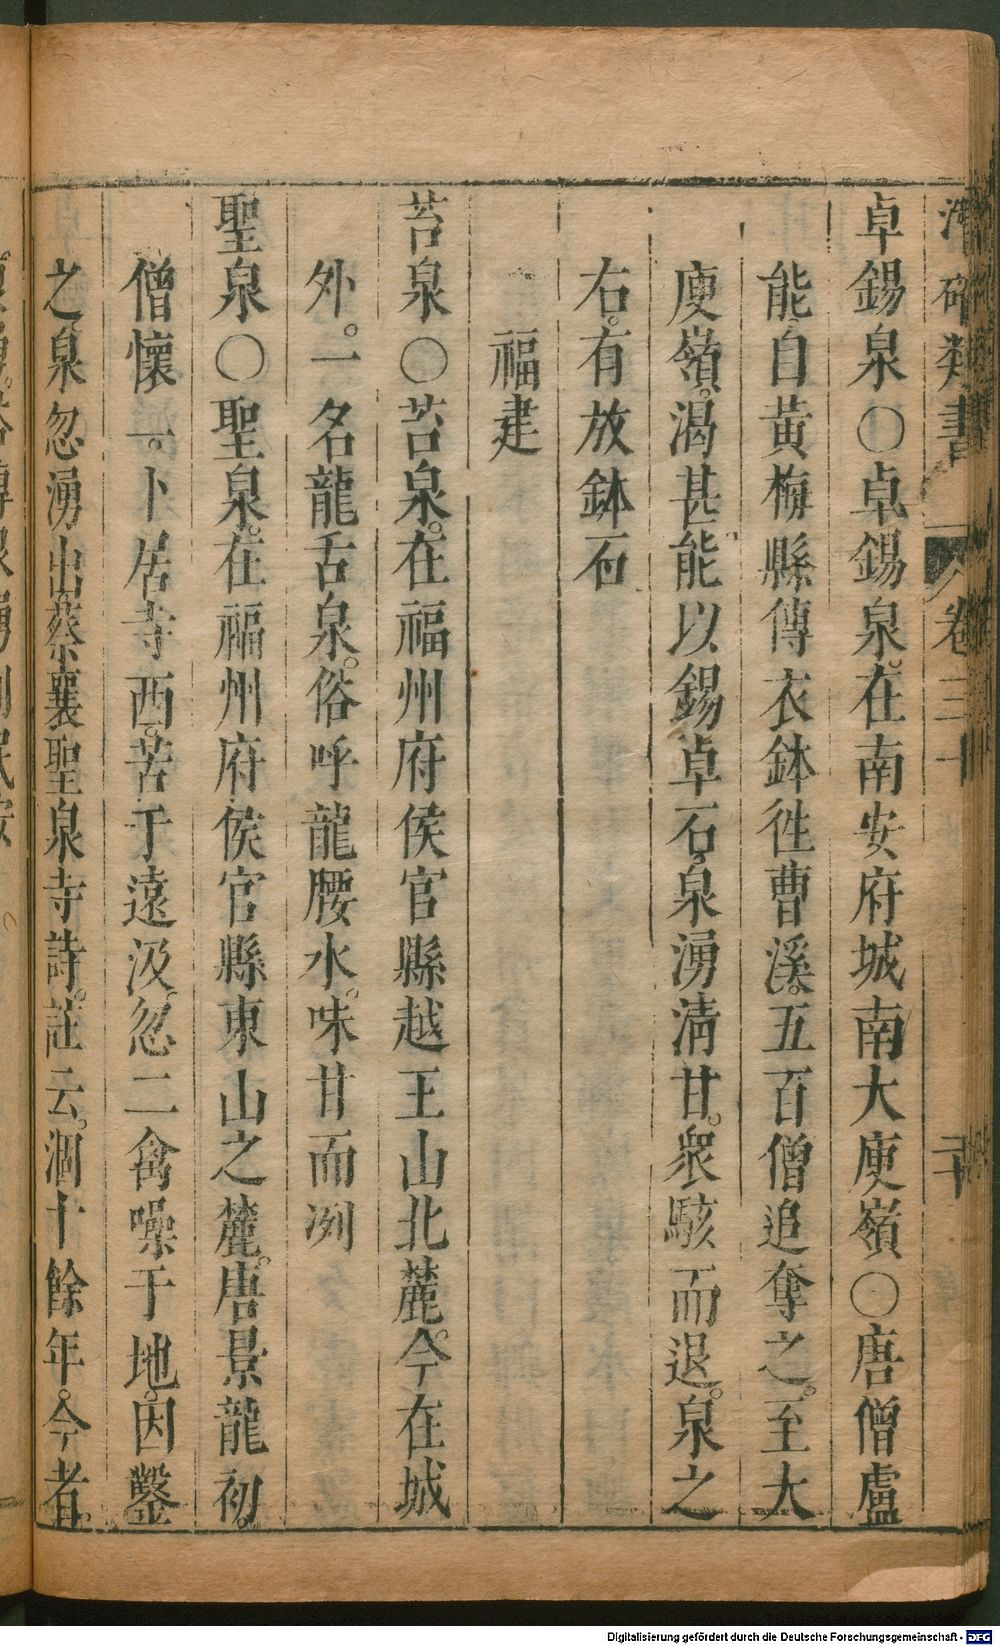 潛確類書 卷三十 二十
卓錫泉〇卓錫泉。在南安府城南大庾嶺〇唐僧盧
能。自黃梅縣傳衣鉢徃曹溪。五百僧追奪之。至大
庾嶺。渴甚。能以錫卓石。泉湧淸甘。衆駭而退。泉之
右。有放鉢石
福建
苔泉〇苔泉。在福州府侯官縣越王山北麓。今在城
外。一名龍舌泉。俗呼龍腰水。味甘而冽
聖泉〇聖泉。在福州府侯官縣東山之麓。唐景龍初。
僧懷一。卜居寺西。苦于遠汲。忽二禽噪于地。因鑿
之。泉忽湧出。蔡襄聖泉寺詩。註云。涸十餘年。今者。
Digitalisierung gefördert durch die Deutsche Forschungsgemeinschaft - DFG